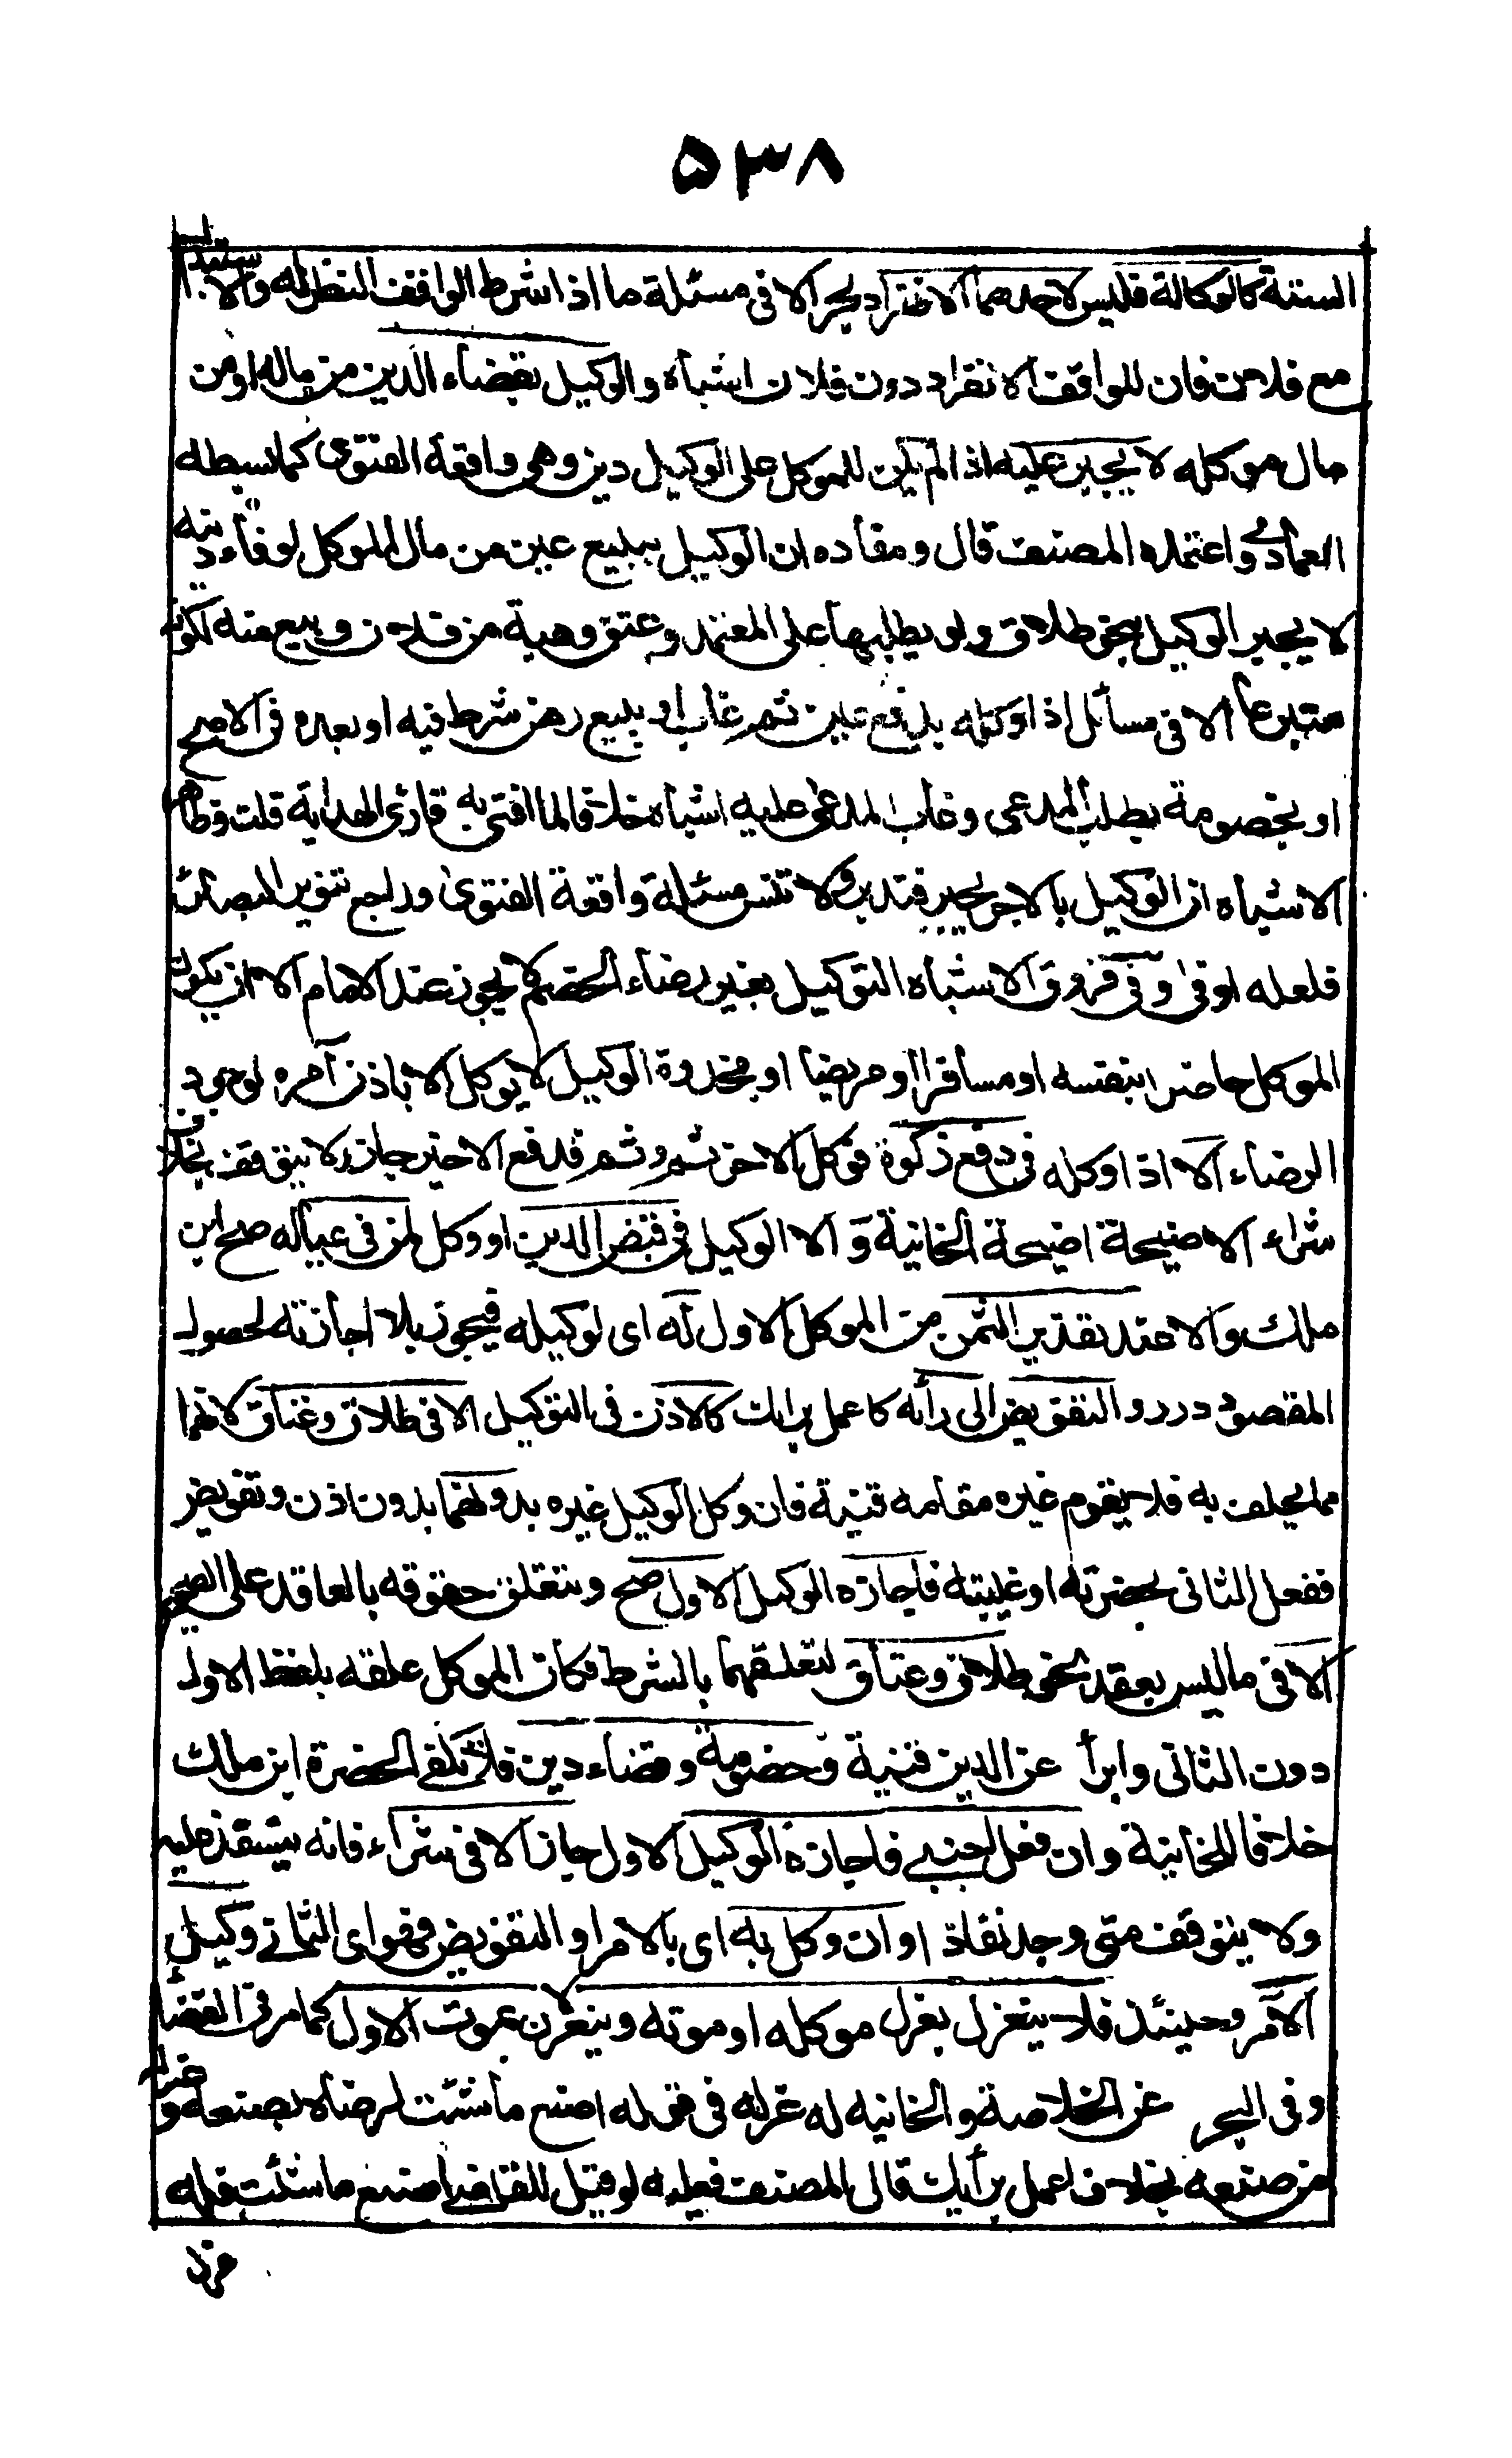 ۵۳۸
الستة كالوكالة فليس لاحدهما الانفراد بحر الا فى مسئلة ما اذا شرط الواقف النظر له والاستبدال
مع فلان فان للواقف الانفراد دون فلان اشباه والوكيل بقضاء الدين من ماله او من
مال موكله لا يجبر عليه اذا لم يكن للموكل على الوكيل دين وهى واقعة الفتوى كما بسطه
العمادى واعتمده المصنف قال ومفاده ان الوكيل ببيع عين من مال الموكل لوفاء دينه
لا يجبر الوكيل بنحو طلاق ولو بطلبها على المعتمد وعتق وهبة من فلان وبيع منه لكونه
متبرعا الا فى مسائل اذا وكله بدفع عين ثم غاب او ببيع رهن شرط فيه او بعده فى الاصح
او بخصومة بطلب المدعى وغاب المدعى عليه اشباه خلافا لما افتى به قارئ الهداية قلت وظاهر
الاشباه ان الوكيل بالاجر يجبر فتدبر ولا تنس مسئلة واقعة الفتوى وراجع تنوير البصائر
فلعله اوفى وفى فروق الاشباه التوكيل بغير رضاء الخصم لا يجوز عند الامام الا ان يكون
الموكل حاضرا بنفسه او مسافرا او مريضا او مخدرة الوكيل لا يوكل الا باذن آمره لوجود
الرضاء الا اذا وكله فى دفع زكوة فوكل الاخر ثم وثم فدفع الاخير جاز ولا يتوقف بخلاف
شراء الاضحية اضحية الخانية و الا الوكيل فى قبض الدين او وكل لمن فى عياله صح ابن
ملك والا عند تقدير الثمن من الموكل الاول له اى لوكيله فيجوز بلا اجازته لحصول
المقصود درر و التفويض الى رأيه كاعمل برايك كالاذن فى التوكيل الا فى طلاق وعتاق لانهما
مما يحلف به فلا يقوم غيره مقامه قنية فان وكل الوكيل غيره بدونهما بدون اذن وتفويض
ففعل الثانى بحضرته او غيبته فاجازه الوكيل الاول صح وتتعلق حقوقه بالعاقد على الصحيح
الا فى ما ليس بعقد نحو طلاق وعتاق لتعلقهما بالشرط فكان الموكل علقه بلفظ الاول
دون الثانى وابرأ عن الدين قنية وخصومة وقضاء دين فلا تكفى الحضرة ابن ملك
خلافا للخانية وان فعل اجنبى فاجازه الوكيل الاول جاز الا فى شراء فانه ينفذ عليه
ولا يتوقف متى وجد نفاذ او ان وكل به اى بالامر او التفويض فهو اى الثانى وكيل
الآمر وحينئذ فلا ينعزل بعزل موكله او موته وينعزلان بموت الاول كما مر فى القضاء
وفى البحر عن الخلاصة والخانيه له عزله فى قوله اصنع ما شئت لرضاه بصنعه وعزله
من صنعه بخلاف اعمل برأيك قال المصنف فعليه لو قيل للقاضى اصنع ما شئت فله